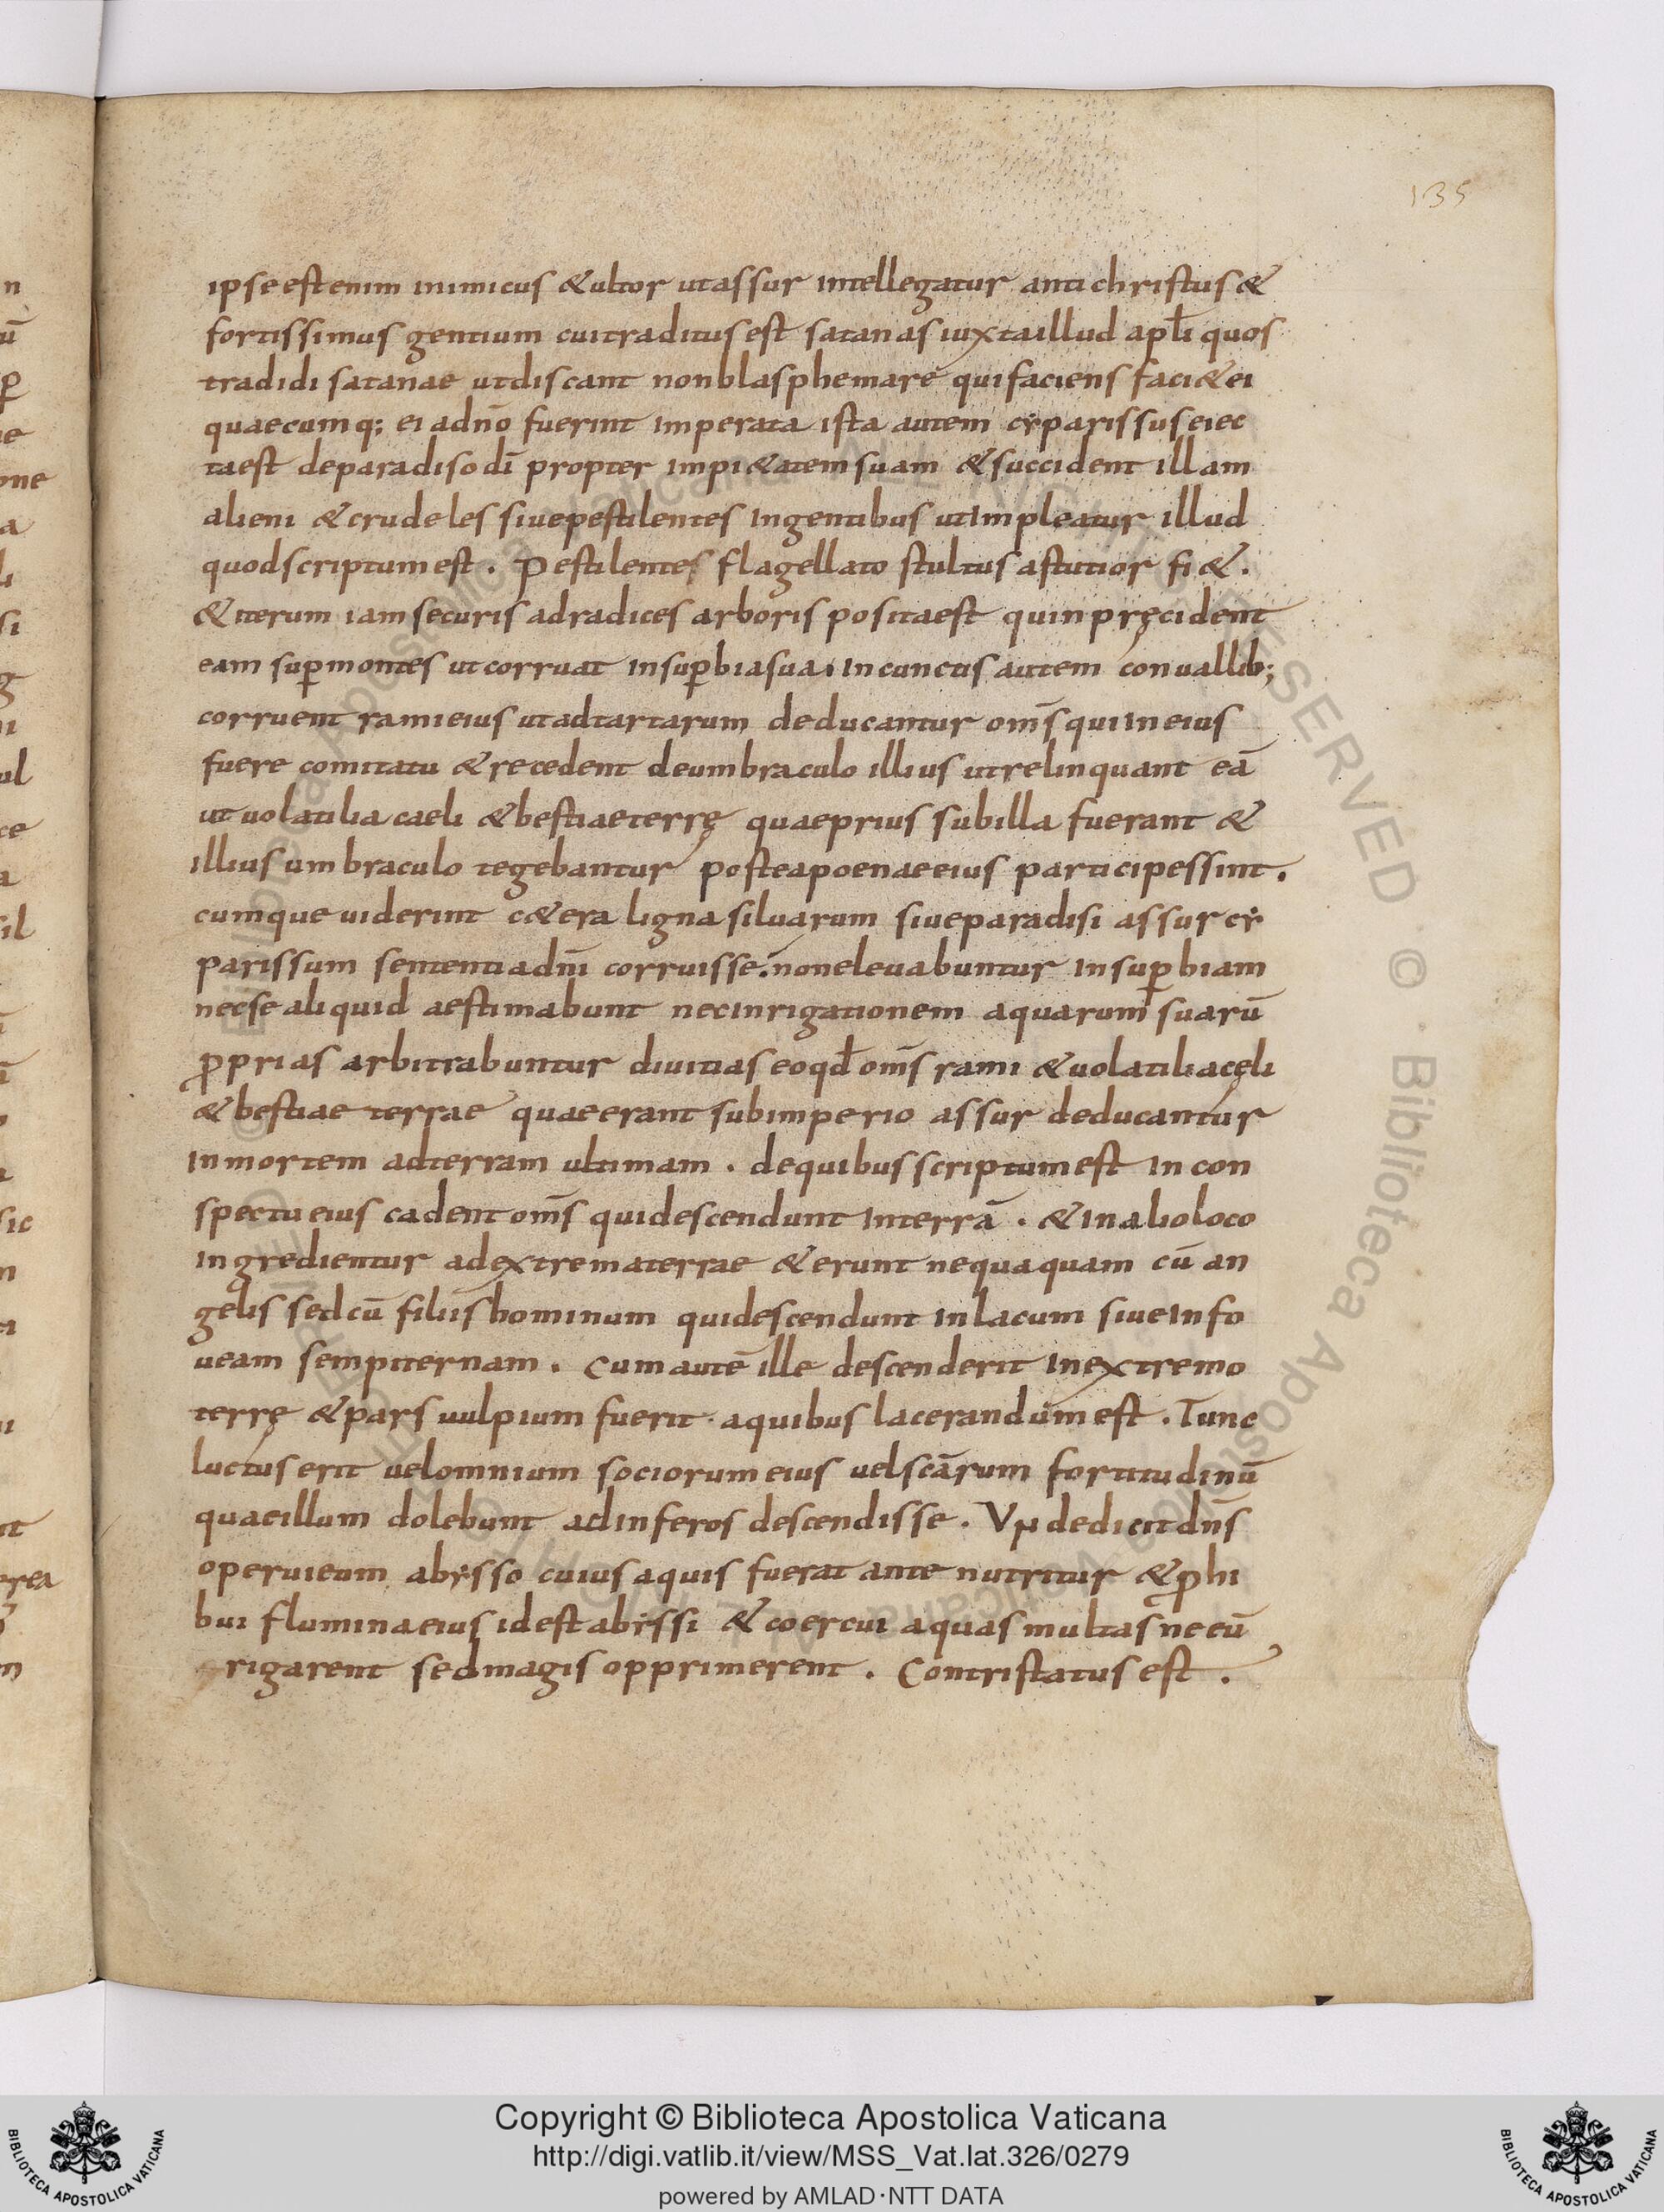 135
ipse est enim inimicus & ultor ut assur intellegatur antichristus &
fortissimus gentium cui traditus est satanas iuxta illud apl̄i quos
tradidi satanae ut discant non blasphemare qui faciens faci& ei
quaecumq; ei a dn̄o fuerint imperata ista autem cẏparissus eiec
ta est de paradiso dī propter impi&atem suam & succident illam
alieni & crudeles siue pestilentes in gentibus ut impleatur illud
quod scriptum est . Pestilentes flagellato stultus astutior fi& .
& iterum iam securis ad radices arboris posita est quin pręcident
eam sup̄ montes ut corruat in sup̄bia sua . in cunctis autem conuallib;
corruent rami eius ut ad tartarum deducantur om̄s qui in eius
fuere comitatu & recedent de umbraculo illius ut relinquant eā
ut uolatilia caeli & bestiae terrę quae prius sub illa fuerant &
illius umbraculo tegebantur postea poenae eius participes sint .
cumque uiderint c&era ligna siluarum siue paradisi assur cẏ
parissum sententia dn̄i corruisse . non eleuabuntur in sup̄biam
nec se aliquid aestimabunt nec inrigationem aquarum suarū
p̱prias arbitrabuntur diuitias eo qd̄ om̄s rami & uolatilia cęli
& bestiae terrae quae erant sub imperio assur deducantur
in mortem ad terram ultimam . de quibus scriptum est in con
spectu eius cadent om̄s qui descendunt in terrā . & in alio loco
ingredientur ad extrema terrae & erunt nequaquam cū an
gelis sed cū filiis hominum qui descendunt in lacum siue in fo
ueam sempiternam . Cum autē ille descenderit in extremo
terrę & pars uulpium fuerit . a quibus lacerandum est . Tunc
luctus erit uel omnium sociorum eius uel scārum fortitudinū
quae illum dolebunt ad inferos descendisse . dedicit dn̄s
operui eum abẏsso cuius aquis fuerat ante nutritur & p̱hi
bui flumina eius id est abẏssi & coercui aquas multas ne eū
rigarent sed magis opprimerent . Contristatus est .
Copyright © Biblioteca Apostolica Vaticana
http://digi.vatlib.it/view/MSS_Vat.lat.326/0279
powered by AMLAD·NTT DATA
BIBLIOTECA APOSTOLICA VATICANA
BIBLIOTECA APOSTOLICA VATICANA